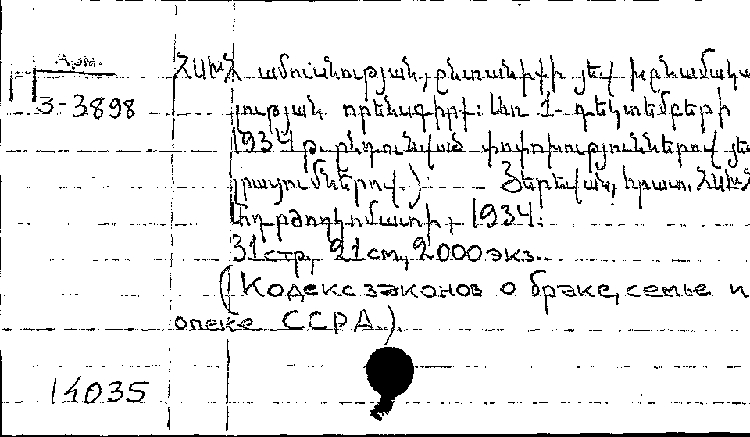 Арм.
3-3898
ՀԱԽՀ ամուսնության, ընտանիքի յեվ խընամակա
լության որենսգիրք: Առ 1-դեկտեմբերի
1934 թ. ընդունված փոփոխություններով յե
լրացումներով.) Յերեվան, հրատ. ՀԱԽՀ
1934.
31 стр, 21 см, 2000 экз.
(Кодекс законов о браке, семье и
опеке ССРА).
14035